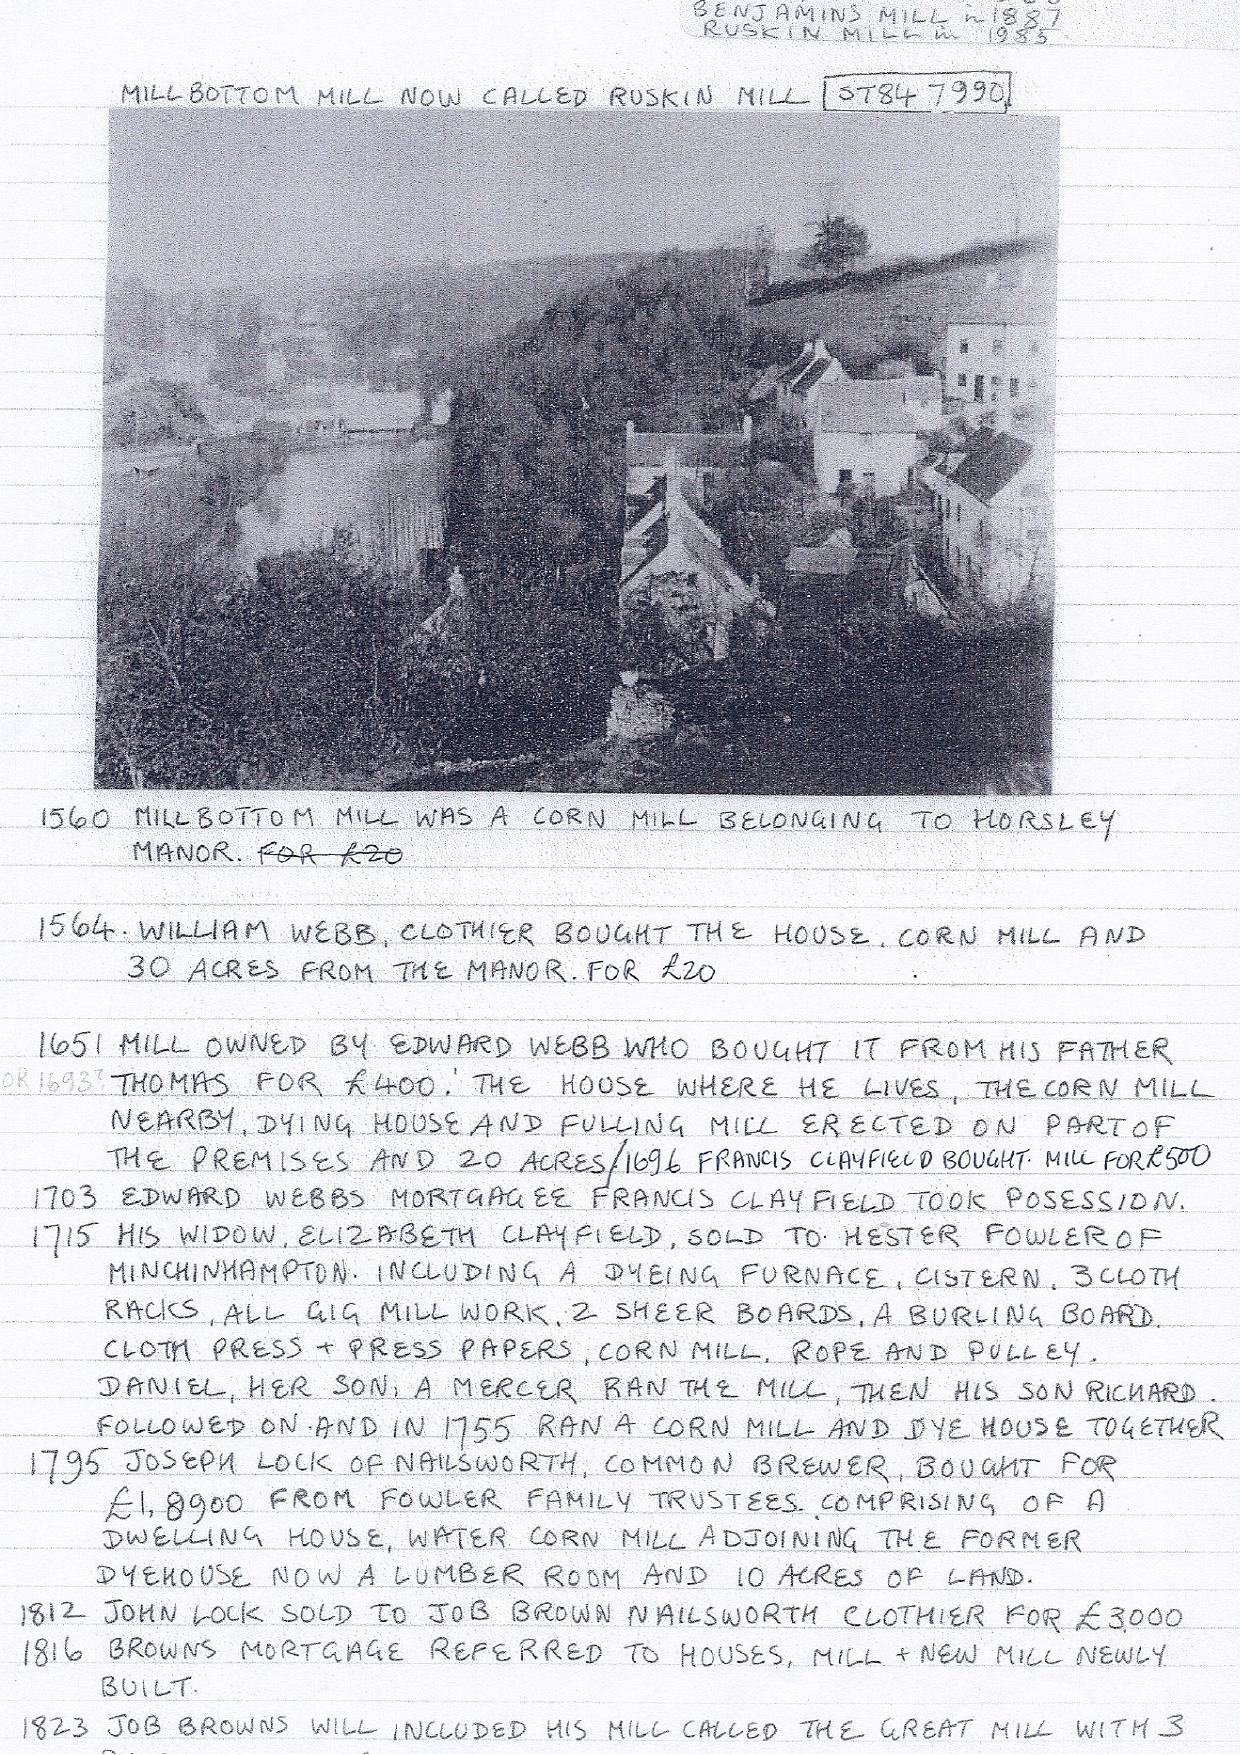 BENJAMINS MILL in 1887
RUSKIN MILL in 1985
MILLBOTTOM MILL NOW CALLED RUSKIN MILL ST84 7990
1560 MILLBOTTOM MILL WAS A CORN MILL BELONGING TO HORSLEY
MANOR. FOR £20
1564. WILLIAM WEBB, CLOTHIER BOUGHT THE HOUSE, CORN MILL AND
30 ACRES FROM THE MANOR. FOR £20
1651 MILL OWNED BY EDWARD WEBB WHO BOUGHT IT FROM HIS FATHER
OR 1693? THOMAS FOR £400. THE HOUSE WHERE HE LIVES, THE CORN MILL
NEARBY, DYING HOUSE AND FULLING MILL ERECTED ON PART OF
THE PREMISES AND 20 ACRES/1696 FRANCIS CLAYFIELD BOUGHT. MILL FOR £500
1703 EDWARD WEBBS MORTGAGEE FRANCIS CLAYFIELD TOOK POSESSION.
1715 HIS WIDOW, ELIZABETH CLAYFIELD, SOLD TO HESTER FOWLER OF
MINCHINHAMPTON. INCLUDING A DYEING FURNACE, CISTERN, 3 CLOTH
RACKS, ALL GIG MILL WORK, 2 SHEER BOARDS, A BURLING BOARD,
CLOTH PRESS + PRESS PAPERS, CORN MILL, ROPE AND PULLEY.
DANIEL, HER SON, A MERCER RAN THE MILL, THEN HIS SON RICHARD.
FOLLOWED ON AND IN 1755 RAN A CORN MILL AND DYE HOUSE TOGETHER
1795 JOSEPH LOCK OF NAILSWORTH, COMMON BREWER, BOUGHT FOR
£1,8900 FROM FOWLER FAMILY TRUSTEES. COMPRISING OF A
DWELLING HOUSE, WATER CORN MILL ADJOINING THE FORMER
DYEHOUSE NOW A LUMBER ROOM AND 10 ACRES OF LAND.
1812 JOHN LOCK SOLD TO JOB BROWN NAILSWORTH CLOTHIER FOR £3,000
1816 BROWNS MORTGAGE REFERRED TO HOUSES, MILL + NEW MILL NEWLY
BUILT.
1823 JOB BROWNS WILL INCLUDED HIS MILL CALLED THE GREAT MILL WITH 3